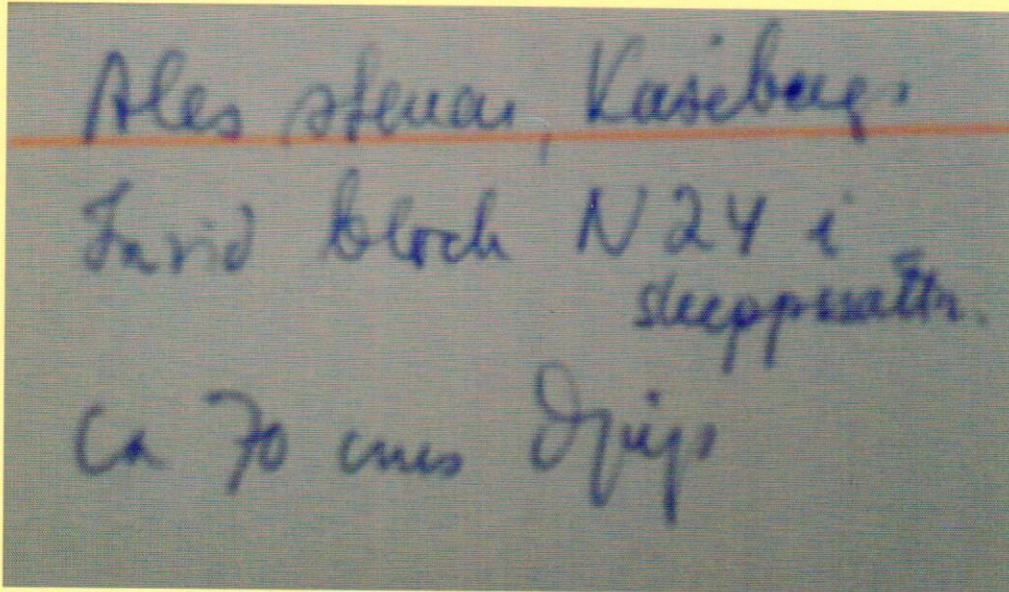 Ales stenar, Kåseberg.
Invid block N 24 i
skeppssättn.
Ca 70 cms djup